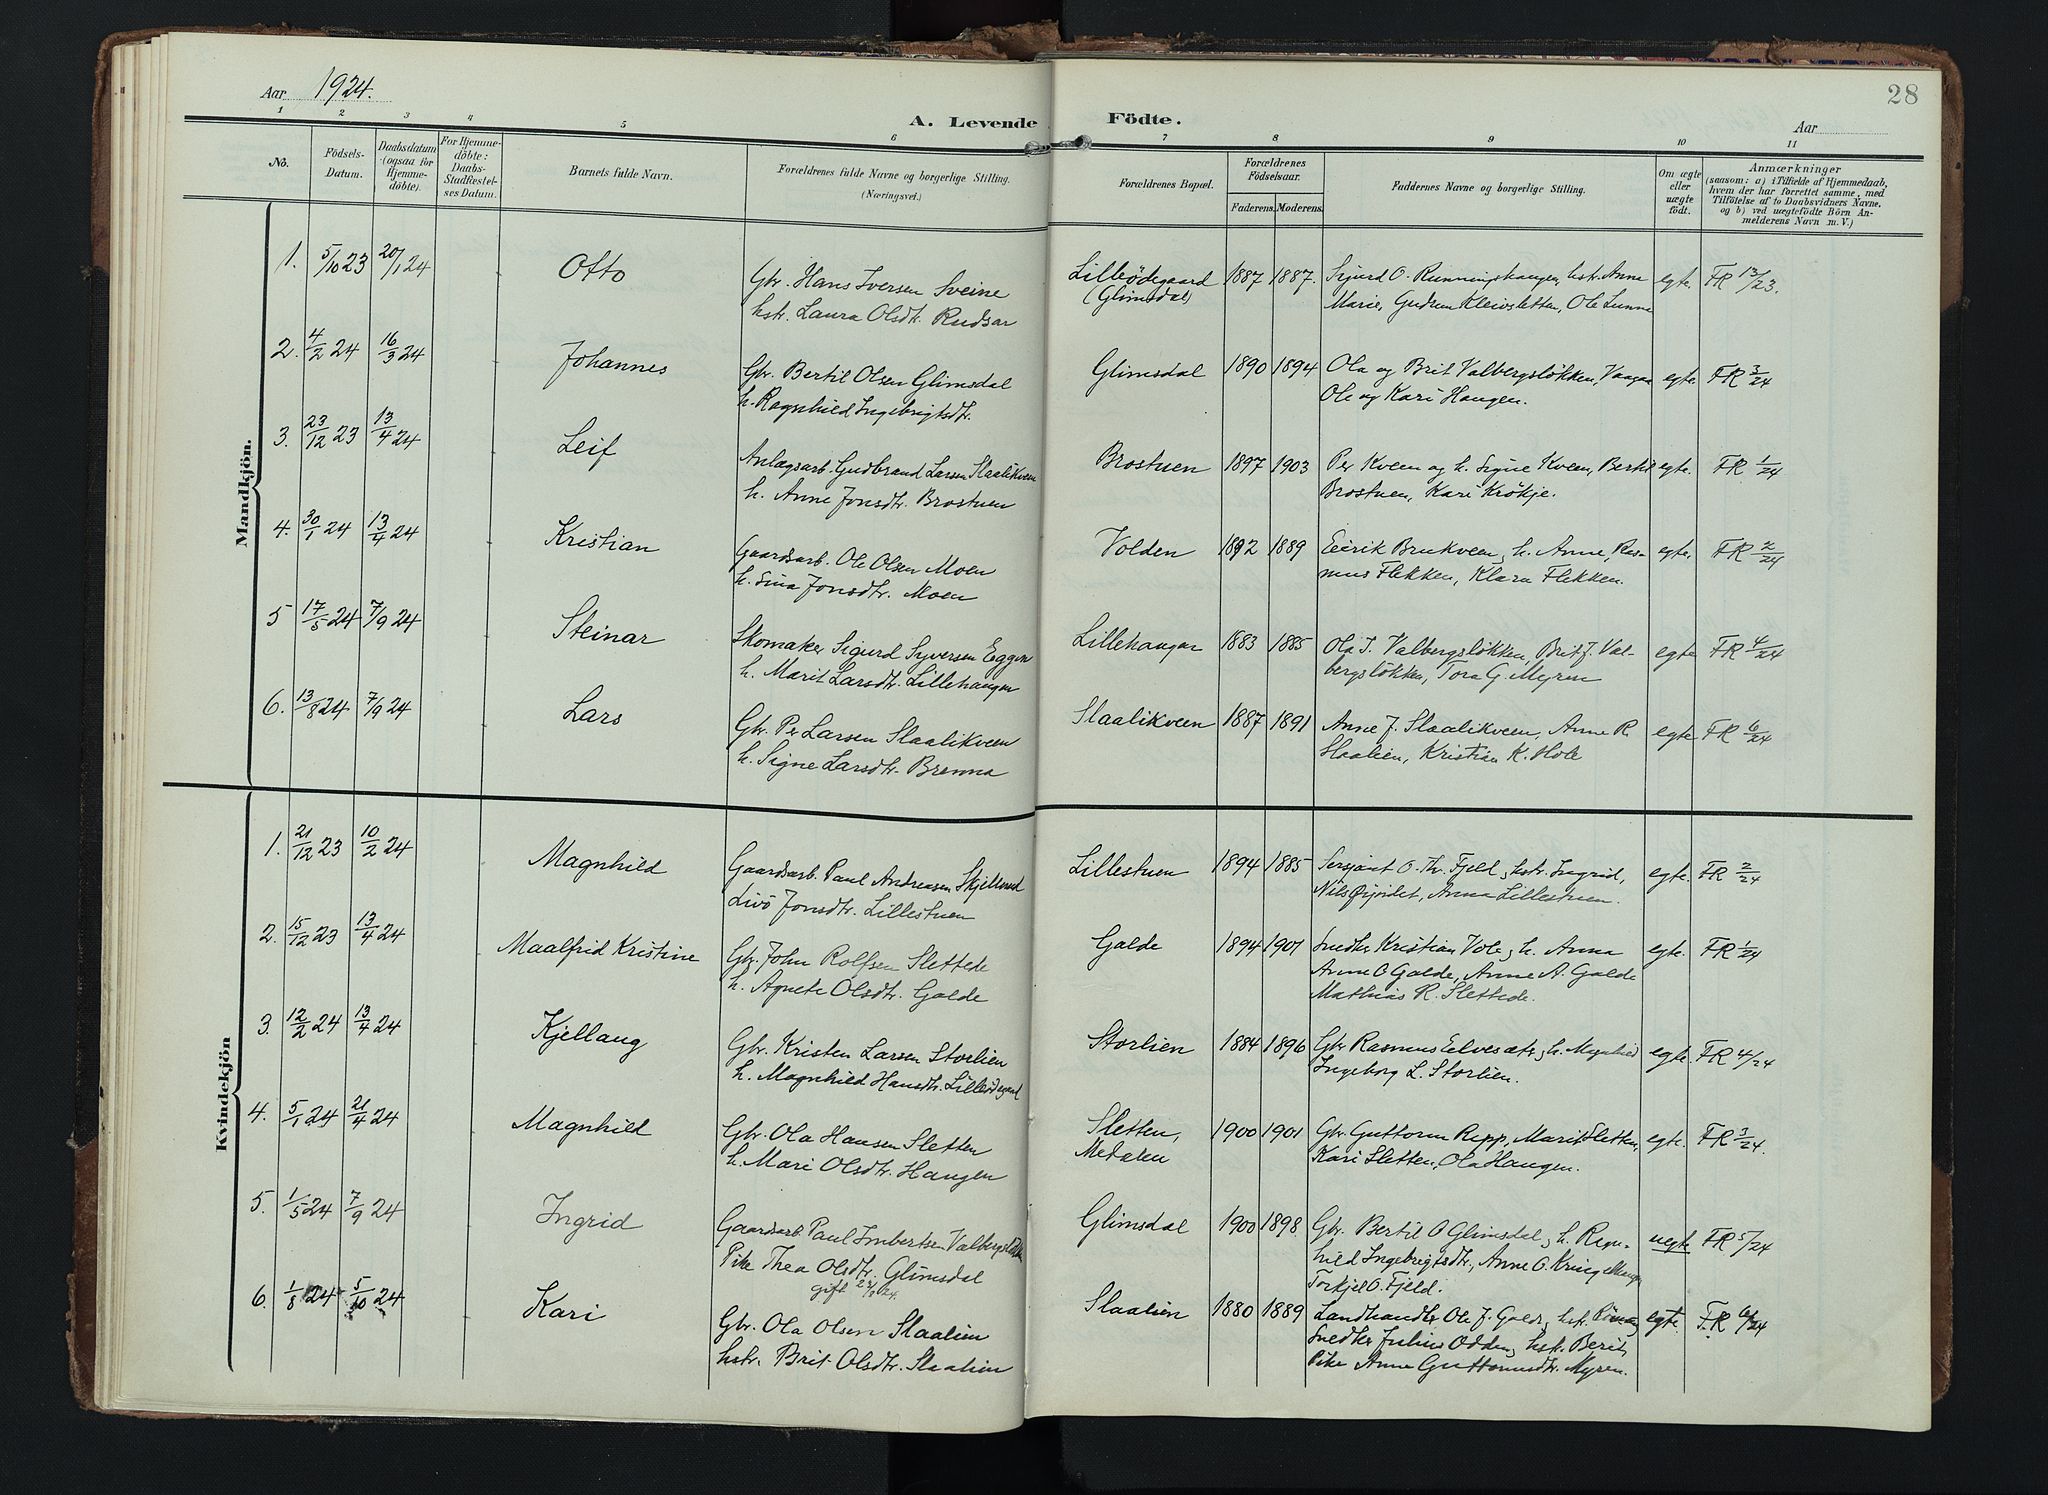 Aar 1924.
A. Levende Födte.
Aar
28
1 2 3 4 5 6 7 8 9 10 11
No.
Födsels-Datum.
Daabsdatum (ogsaa for Hjemmedöbte).
For Hjemmedöbte: Daabs-Stadfæstelses Datum.
Barnets fulde Navn.
Forældrenes fulde Navne og borgerlige Stilling.
(Næringsvei.)
Forældrenes Bopæl.
Forældrenes Födselsaar.
Faderens. Moderens.
Faddernes Navne og borgerlige Stilling.
Om ægte eller uægte födt.
Anmærkninger
(saasom: a) i Tilfælde af Hjemmedaab, hvem der har forrettet samme, med Tilföielse af to Daabsvidners Navne, og b) ved uægtefödte Börn Anmelderens Navn m. V.)
Mandkjön.
1. 5/10 23 20/1 24 Otto Gbr. Hans Iversen Sveine Lilleödegaard 1887 1887. Sigurd O. Runningshaugen, hstr. Anne egte. FR 13/23.
hstr. Laura Olsdtr. Rudsar (Glimsdal) Marie, Gudrun Kleivsletten, Ole Lunne
2. 4/2 24 16/3 24 Johannes Gbr. Bertil Olsen Glimsdal Glimsdal 1890 1894 Ola og Brit Valbergsløkken, Vaagaa egte. FR 3/24
h. Ragnhild Ingebrigtsdtr. Ole og Kari Haugen.
3. 23/12 23 13/4 24 Leif Anlægsarb. Gudbrand Larsen Slaalikveen Brostuen 1897 1903 Per Kveen og h. Signe Kveen, Bertil egte. FR. 1/24
h. Anne Jonsdtr. Brostuen Brostuen, Kari Krökje.
4. 30/1 24 13/4 24 Kristian Gaardsarb. Ole Olsen Moen Volden 1892 1889 Eirik Brukveen, h. Anne, Ras- egte. FR 2/24
h. Sina Jonsdtr. Moen mus Flekken, Klara Flekken.
5 17/5 24 7/9 24 Steinar Skomaker Sigurd Syversen Eggen Lillehaugen 1883 1885 Ola J. Valbergsløkken, Brit J. Val- egte FR 4/24
h. Marit Larsdtr. Lillehaugen bergsløkken, Tora G. Myren
6. 13/8 24 7/9 24 Lars Gbr. Per Larsen Slaalikveen Slaalikveen 1887 1891 Anne J. Slaalikveen, Anne R. egte FR 6/24
h. Signe Larsdtr. Brenna Slaalien, Kristian K. Hole
Kvindekjön
1. 21/12 23 10/2 24 Magnhild Gaardsarb. Paul Andreasen Skjellerud Lillestuen 1894 1885 Sersjant O. Th. Fjeld, hstr. Ingrid, egte. FR 2/24
Livö Jonsdtr. Lillestuen Nils, Anna Lillestuen.
2. 15/12 23 13/4 24 Maalfrid Kristine Gbr. John Rolfsen Slettede Galde 1894 1901 Snedker Kristian Vole, h. Anna egte. FR 1/24
h. Agnete Olsdtr. Galde Anne O Galde, Anne A. Galde
Mathias R. Slettede.
3. 12/2 24 13/4 24 Kjellaug Gbr. Kristen Larsen Storlien Storlien 1884 1896 Gbr Rasmus Elvesætr, h. Magnhild egte. FR 4/24
h. Magnhild Hansdtr. Lilleödegaard Ingeborg L. Storlien.
4. 5/1 24 21/4 24 Magnhild Gbr. Ola Hansen Sletten Sletten, 1900 1901 Gbr. Guttorm Repp, Marit Sletten, egte. FR 3/24.
h. Mari Olsdtr. Haugen Medalen Kari Sletten, Ola Haugen.
5. 1/5 24 7/9 24 Ingrid Gaardsarb. Paul Imbertsen Valbergsløkken Glimsdal 1900 1898 Gbr. Bertil O Glimsdal, h. Ragn- uegte FR 5/24
Pike Thea Olsdtr. Glimsdal hild Ingebrigtsdtr., Anne O.
gift 24. Torkjel O. Fjeld.
6. 1/8 24 5/10 24 Kari Gbr. Ola Olsen Slaalien Slaalien 1880 1889 Landhandler Ole J. Galde, hstr. egte. FR 6/24
hstr. Brit Olsdtr. Slaalien Snedker Julius Odden, hstr. Berit,
Pike Anne Guttormsdtr. Myren.